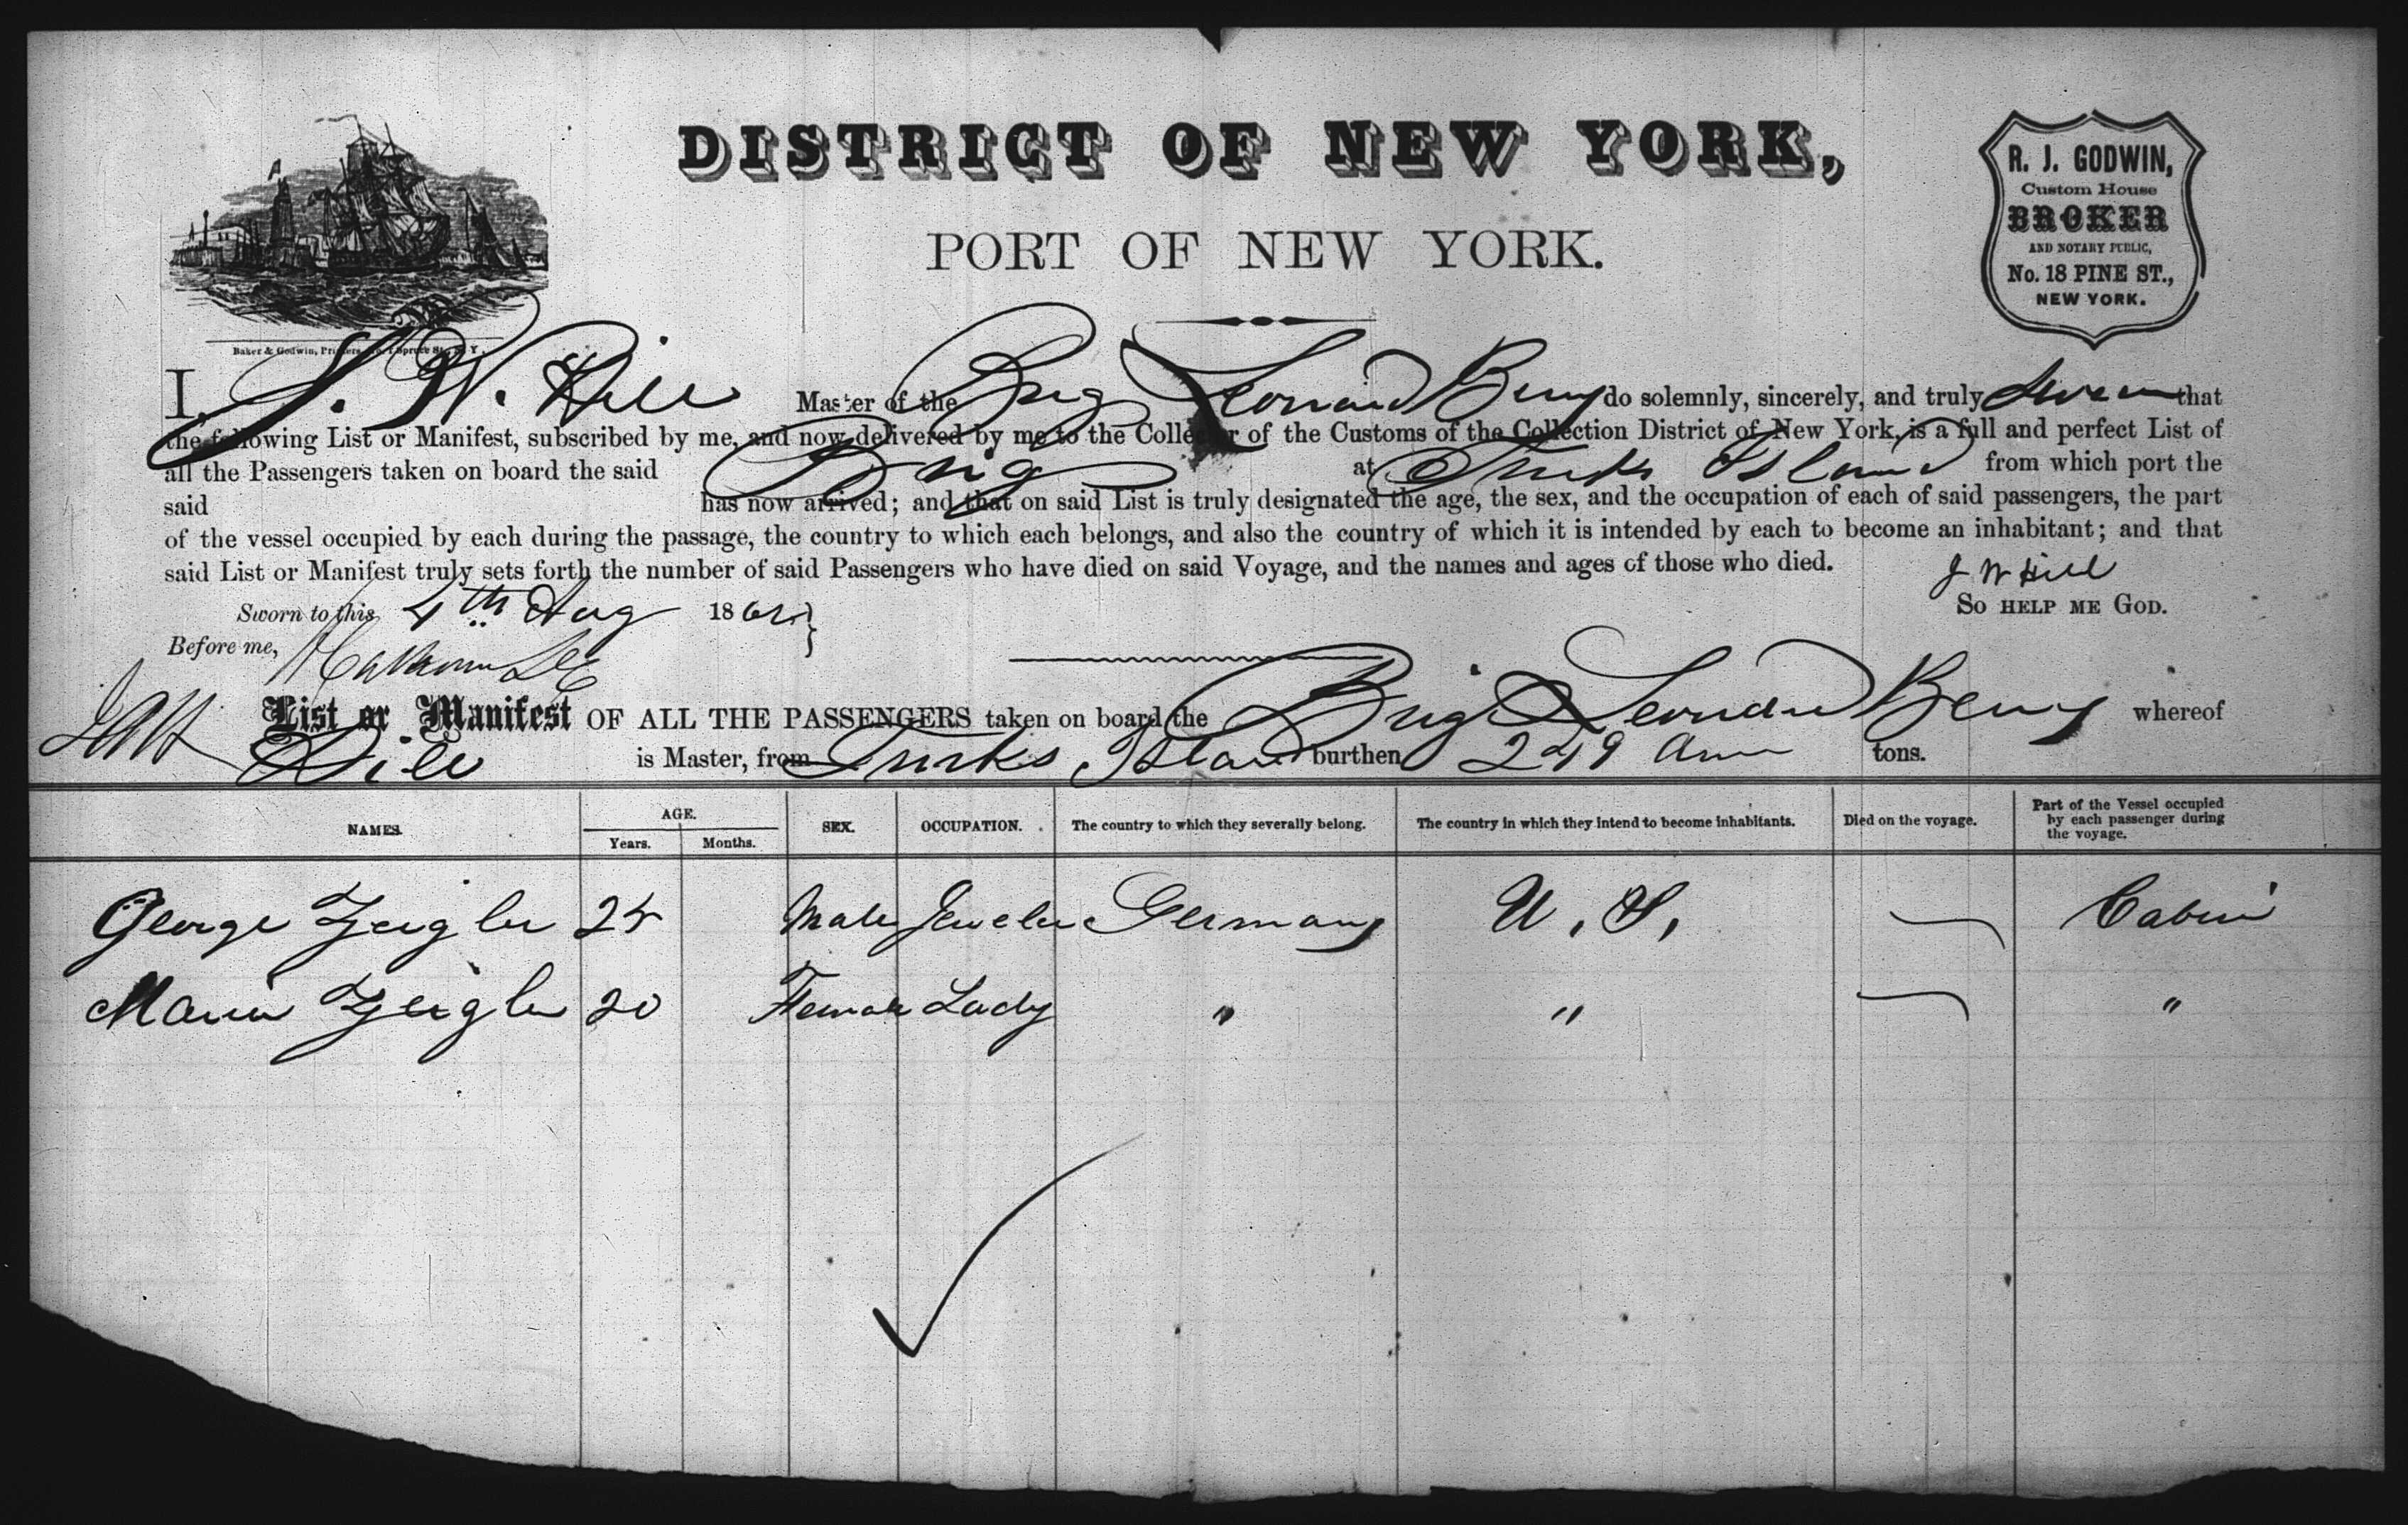 DISTRICT OF NEW YORK,
PORT OF NEW YORK.
R. J. GODWIN,
Custom House
BROKER
AND NOTARY PUBLIC,
No. 18 PINE ST.,
NEW YORK.
Baker & Godwin, Printers, No. 1 Spruce St., N. Y.
I, J. W. Hill Master of the Brig Leonard Berry do solemnly, sincerely, and truly swear that
the following List or Manifest, subscribed by me, and now delivered by me to the Collector of the Customs of the Collection District of New York, is a full and perfect List of
all the Passengers taken on board the said Brig at Turks Island from which port the
said has now arrived; and that on said List is truly designated the age, the sex, and the occupation of each of said passengers, the part
of the vessel occupied by each during the passage, the country to which each belongs, and also the country of which it is intended by each to become an inhabitant; and that
said List or Manifest truly sets forth the number of said Passengers who have died on said Voyage, and the names and ages of those who died.
J W Hill
Sworn to this 4th Aug 186 SO HELP ME GOD.
Before me,
List or Manifest OF ALL THE PASSENGERS taken on board the Brig Leonard Berry whereof
Hill is Master, from Turks Island burthen 249 tons.
NAMES. AGE. Years. Months. SEX. OCCUPATION. The country to which they severally belong. The country in which they intend to become inhabitants. Died on the voyage. Part of the Vessel occupied by each passenger during the voyage.
George Zeigler 25 Male Jeweler Germany U. S. Cabin
Maria Zeigler 20 Female Lady " " "